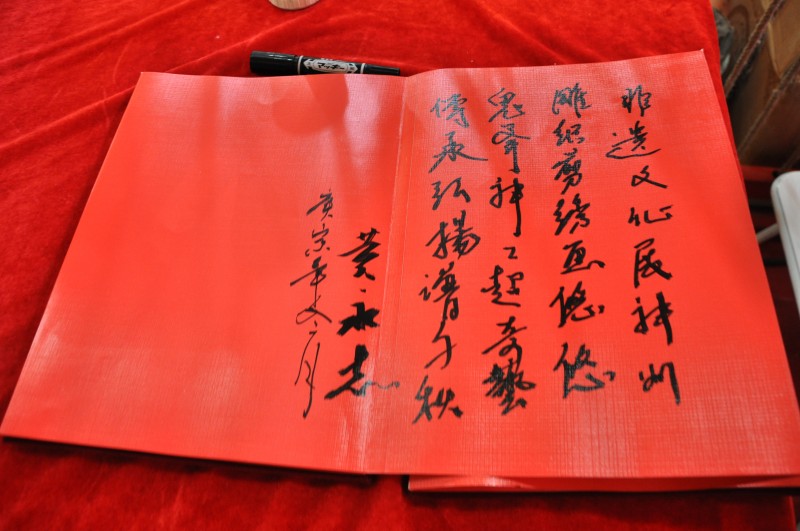 非遗文化展神州
雕织剪绣画悠悠
鬼斧神工超奇藝
傳承弘揚谱千秋
黄永志
庚寅年二月